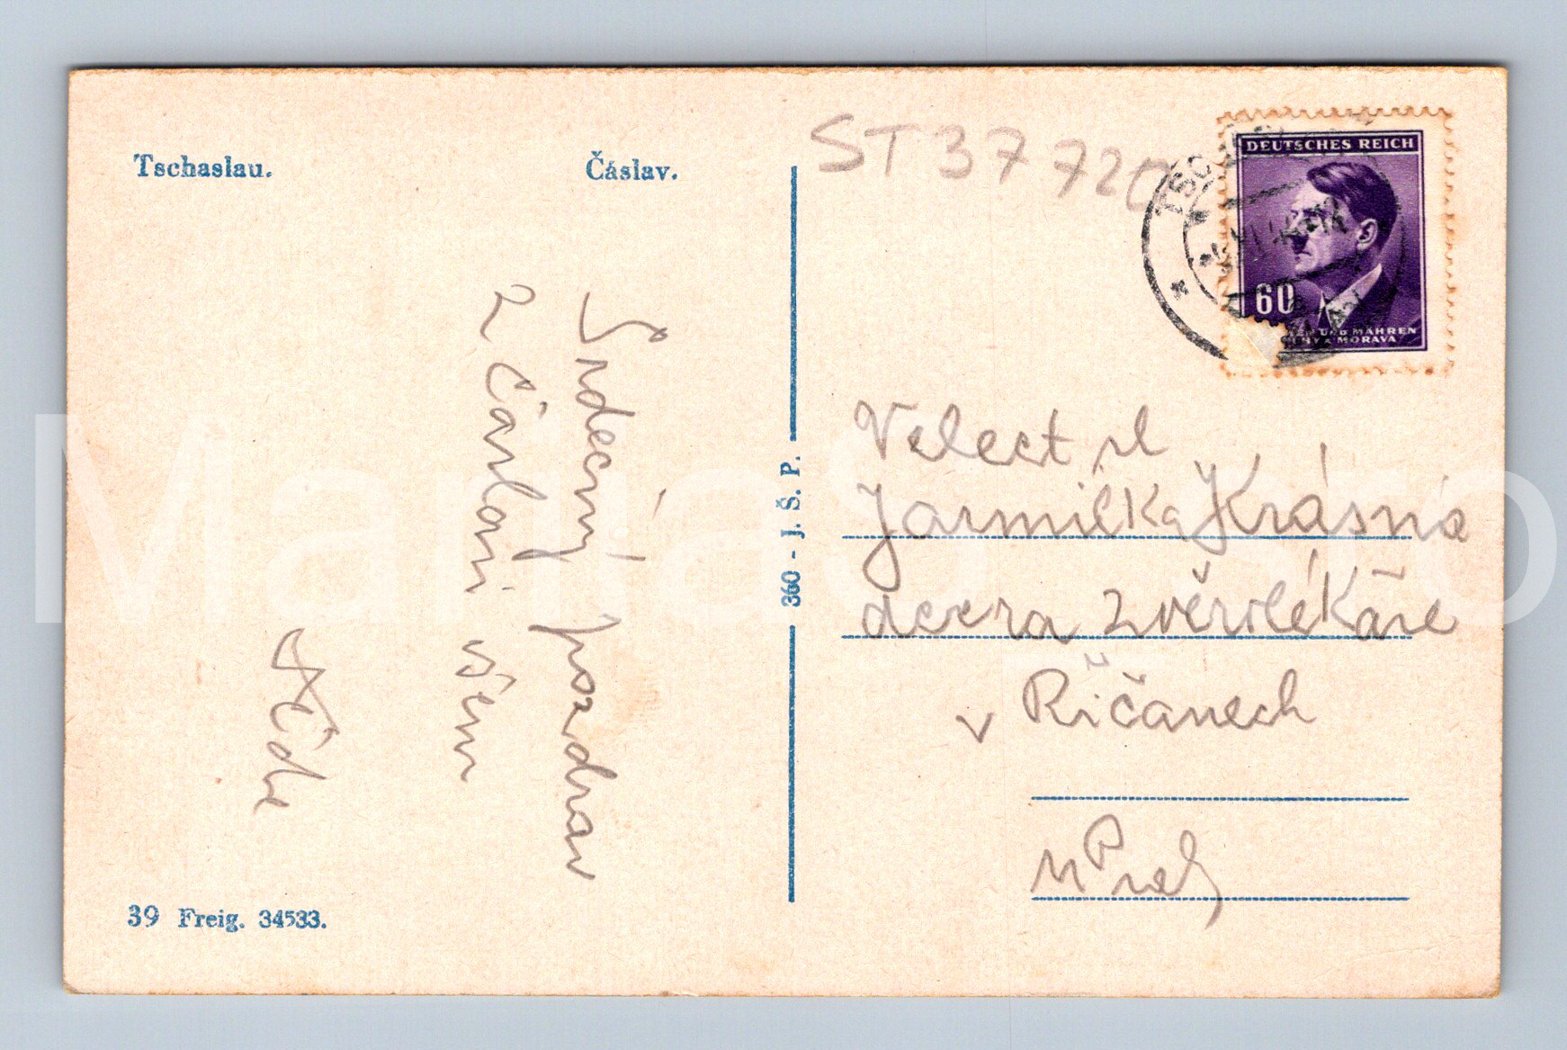 Tschaslau. Čáslav.
ST 37 720
DEUTSCHES REICH
60
UND MÄHREN
MORAVA
Srdečný pozdrav
z Čáslavi všem
Děda
360 - J. Š. P.
Velect. sl
Jarmilka Krásná
dcera zvěrolékaře
v Řičanech
u Prahy
39 Freig. 34533.